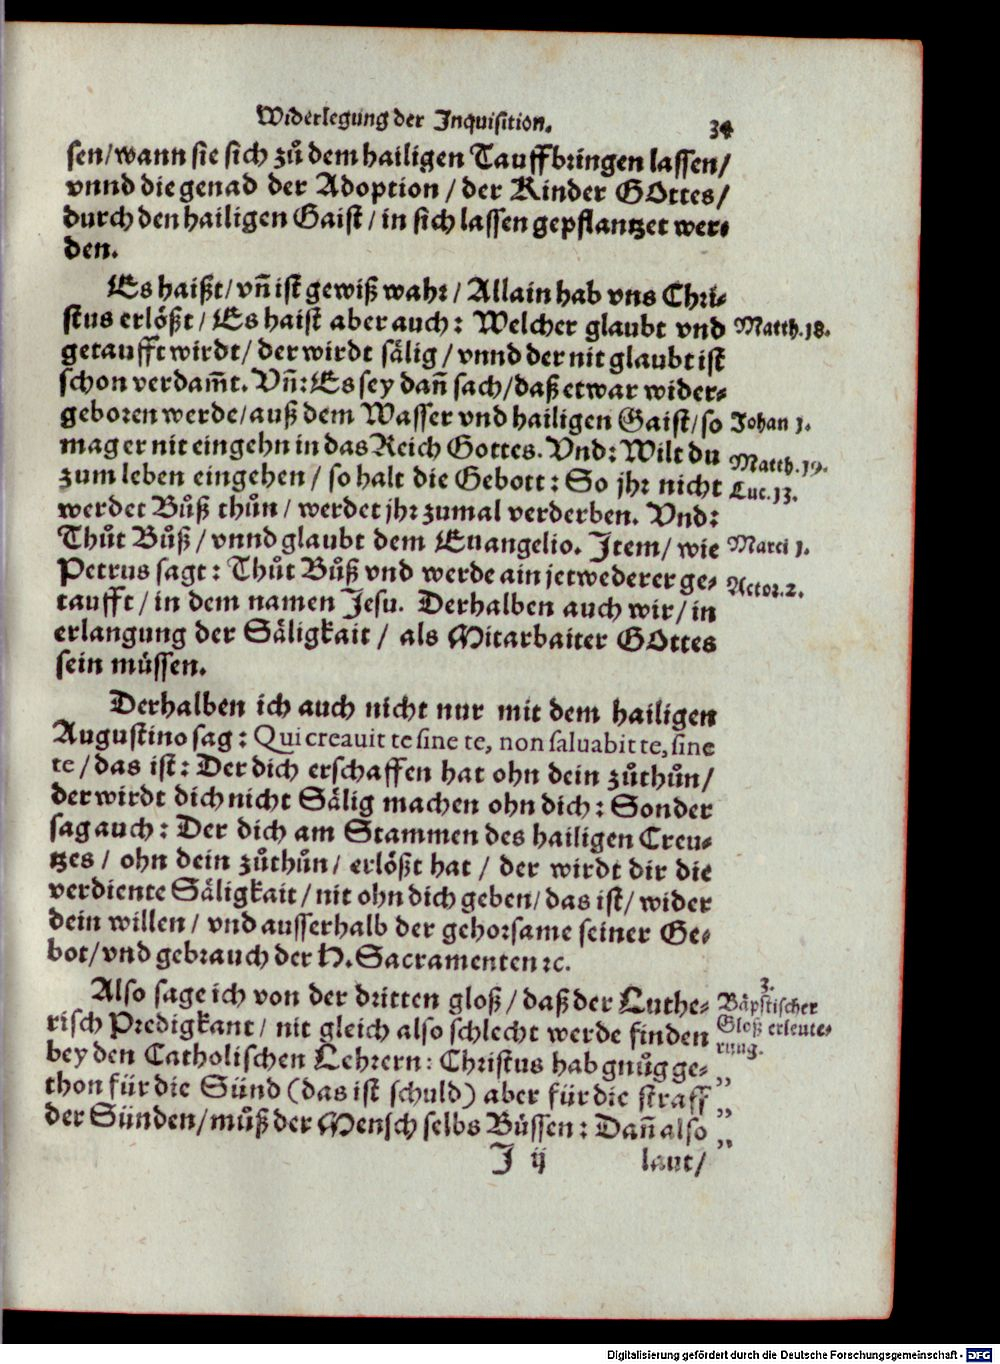 Widerlegung der Inquisition.
34
sen/wann sie sich zů dem hailigen Tauff bringen lassen/
vnnd die genad der Adoption / der Kinder GOttes/
durch den hailigen Gaist / in sich lassen gepflantzet wer-
den.
Es haißt/ vñ ist gewiß wahr / Allain hab vns Chri-
stus erlößt / Es haist aber auch: Welcher glaubt vnd
Matth.18.
getaufft wirdt/ der wirdt sälig / vnnd der nit glaubt ist
schon verdam̃t. Vñ: Es sey dañ sach/daß etwar wider-
geboren werde/auß dem Wasser vnd hailigen Gaist/so
Johan 3.
mag er nit eingehn in das Reich Gottes. Vnd: Wilt du
Matth.19.
zum leben eingehen / so halt die Gebott: So jhr nicht
Luc.13.
werdet Bůß thůn / werdet jhr zumal verderben. Vnd:
Thůt Bůß / vnnd glaubt dem Euangelio. Item/ wie
Marci 1.
Petrus sagt: Thůt Bůß vnd werde ain jetwederer ge-
Actor.2.
taufft / in dem namen Jesu. Derhalben auch wir / in
erlangung der Säligkait / als Mitarbaiter GOttes
sein müssen.
Derhalben ich auch nicht nur mit dem hailigen
Augustino sag: Qui creauit te sine te, non saluabit te, sine
te / das ist: Der dich erschaffen hat ohn dein zůthůn/
der wirdt dich nicht Sälig machen ohn dich: Sonder
sag auch: Der dich am Stammen des hailigen Creu-
tzes / ohn dein zůthůn/ erlößt hat / der wirdt dir die
verdiente Säligkait / nit ohn dich geben/ das ist/ wider
dein willen / vnd ausserhalb der gehorsame seiner Ge-
bot/vnd gebrauch der H. Sacramenten ꝛc.
3.
Also sage ich von der dritten gloß / daß der Luthe-
Bäpstischer
risch Predigkant / nit gleich also schlecht werde finden
Gloß erleute-
rung.
bey den Catholischen Lehrern: Christus hab gnůg ge-
thon für die Sünd (das ist schuld) aber für die straff „
der Sünden/můß der Mensch selbs Büssen: Dañ also „
„
J ij
laut/
Digitalisierung gefördert durch die Deutsche Forschungsgemeinschaft - DFG